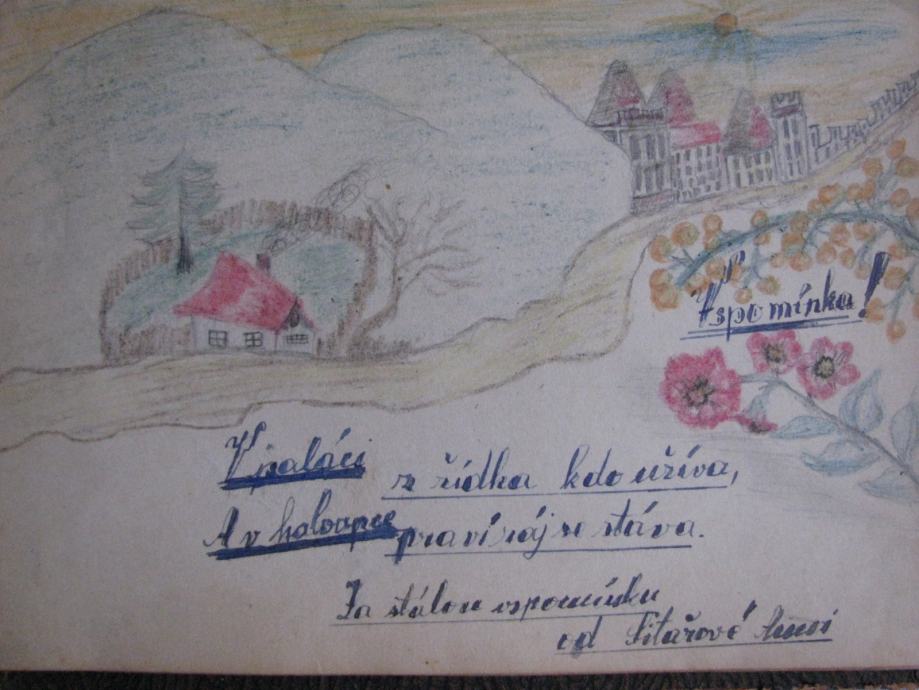 Vspomínka!
V paláci z řídka kdo užíva,
A v haloupce pravi ráj se stáva.
Za stálou vspomínku
od Sitařové